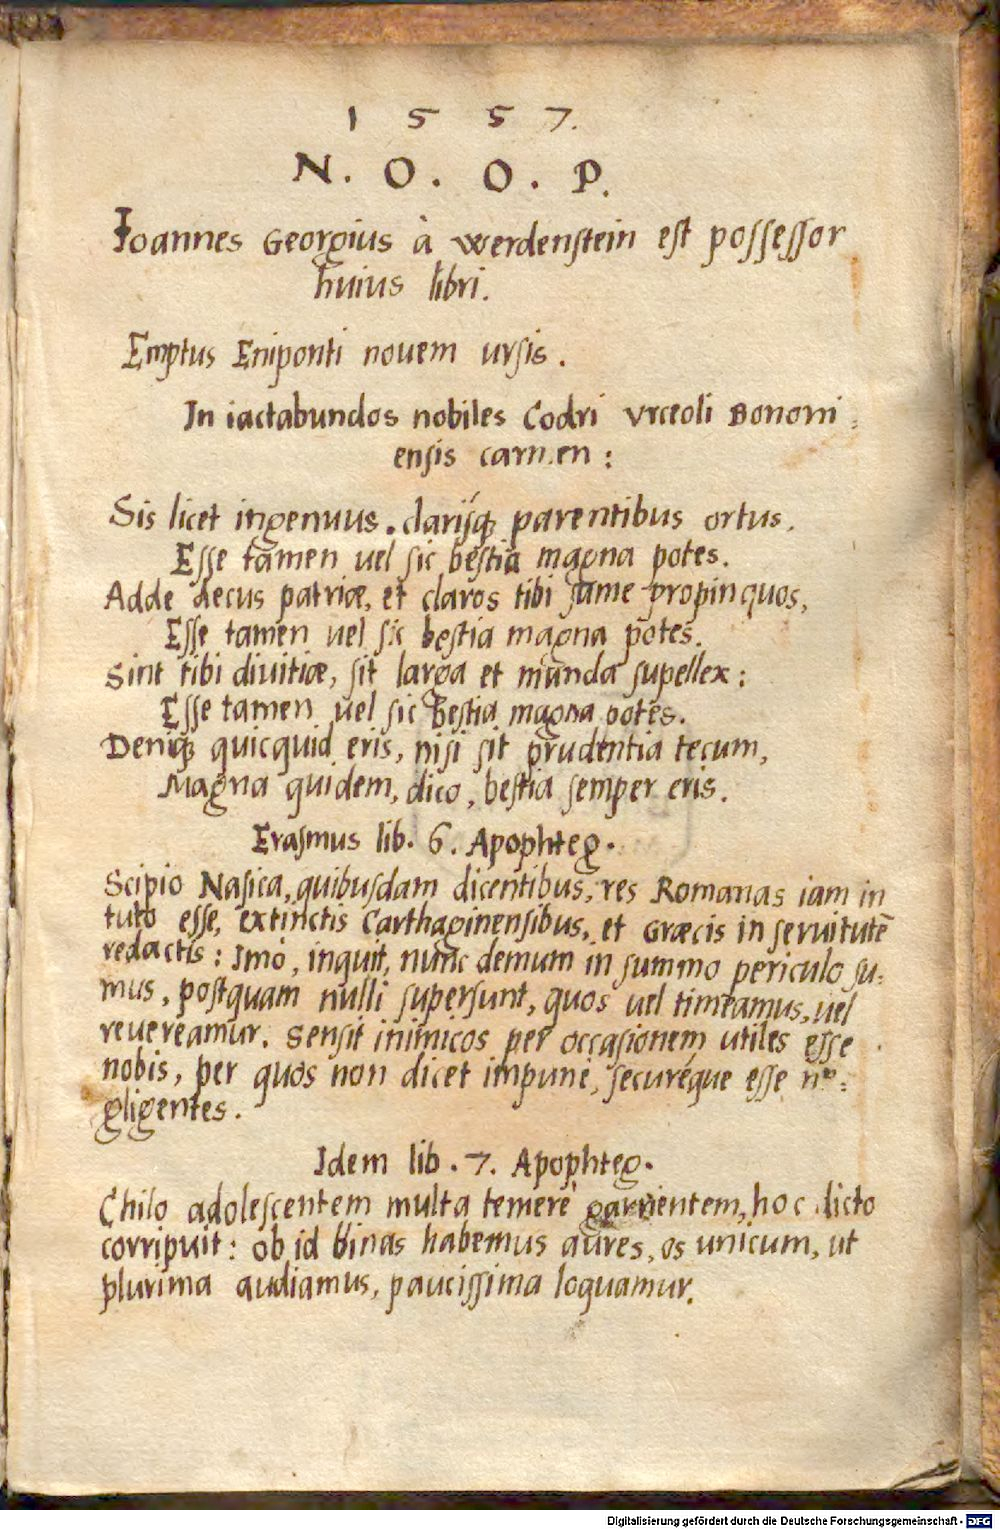 1 5 5 7.
N. O. O. P.
Ioannes Georgius à Werdenstein est possessor
huius libri.
Emptus Eniponti nouem ursis.
In iactabundos nobiles Codri Vrceoli Bononi:
ensis carmen:
Sis licet ingenuus. clarisq; parentibus ortus.
Esse tamen uel sic bestia magna potes.
Adde decus patriæ, et claros tibi sume propinquos,
Esse tamen uel sic bestia magna potes.
Sint tibi diuitiæ, sit larga et munda supellex:
Esse tamen uel sic bestia magna potes.
Deniq; quicquid eris, nisi sit prudentia tecum,
Magna quidem, dico, bestia semper eris.
Erasmus lib. 6. Apophteg.
Scipio Nasica, quibusdam dicentibus, res Romanas iam in
tuto esse, extinctis Carthaginensibus, et Græcis in seruitutē
redactis: Imò, inquit, nunc demum in summo periculo su:
mus, postquam nulli supersunt, quos uel timeamus, uel
reuereamur. Sensit inimicos per occasionem utiles esse
nobis, per quos non licet impune, securéque esse ne:
gligentes.
Idem lib. 7. Apophteg.
Chilo adolescentem multa temerè garrientem, hoc dicto
corripuit: ob id binas habemus aures, os unicum, ut
plurima audiamus, paucissima loquamur.
Digitalisierung gefördert durch die Deutsche Forschungsgemeinschaft - DFG